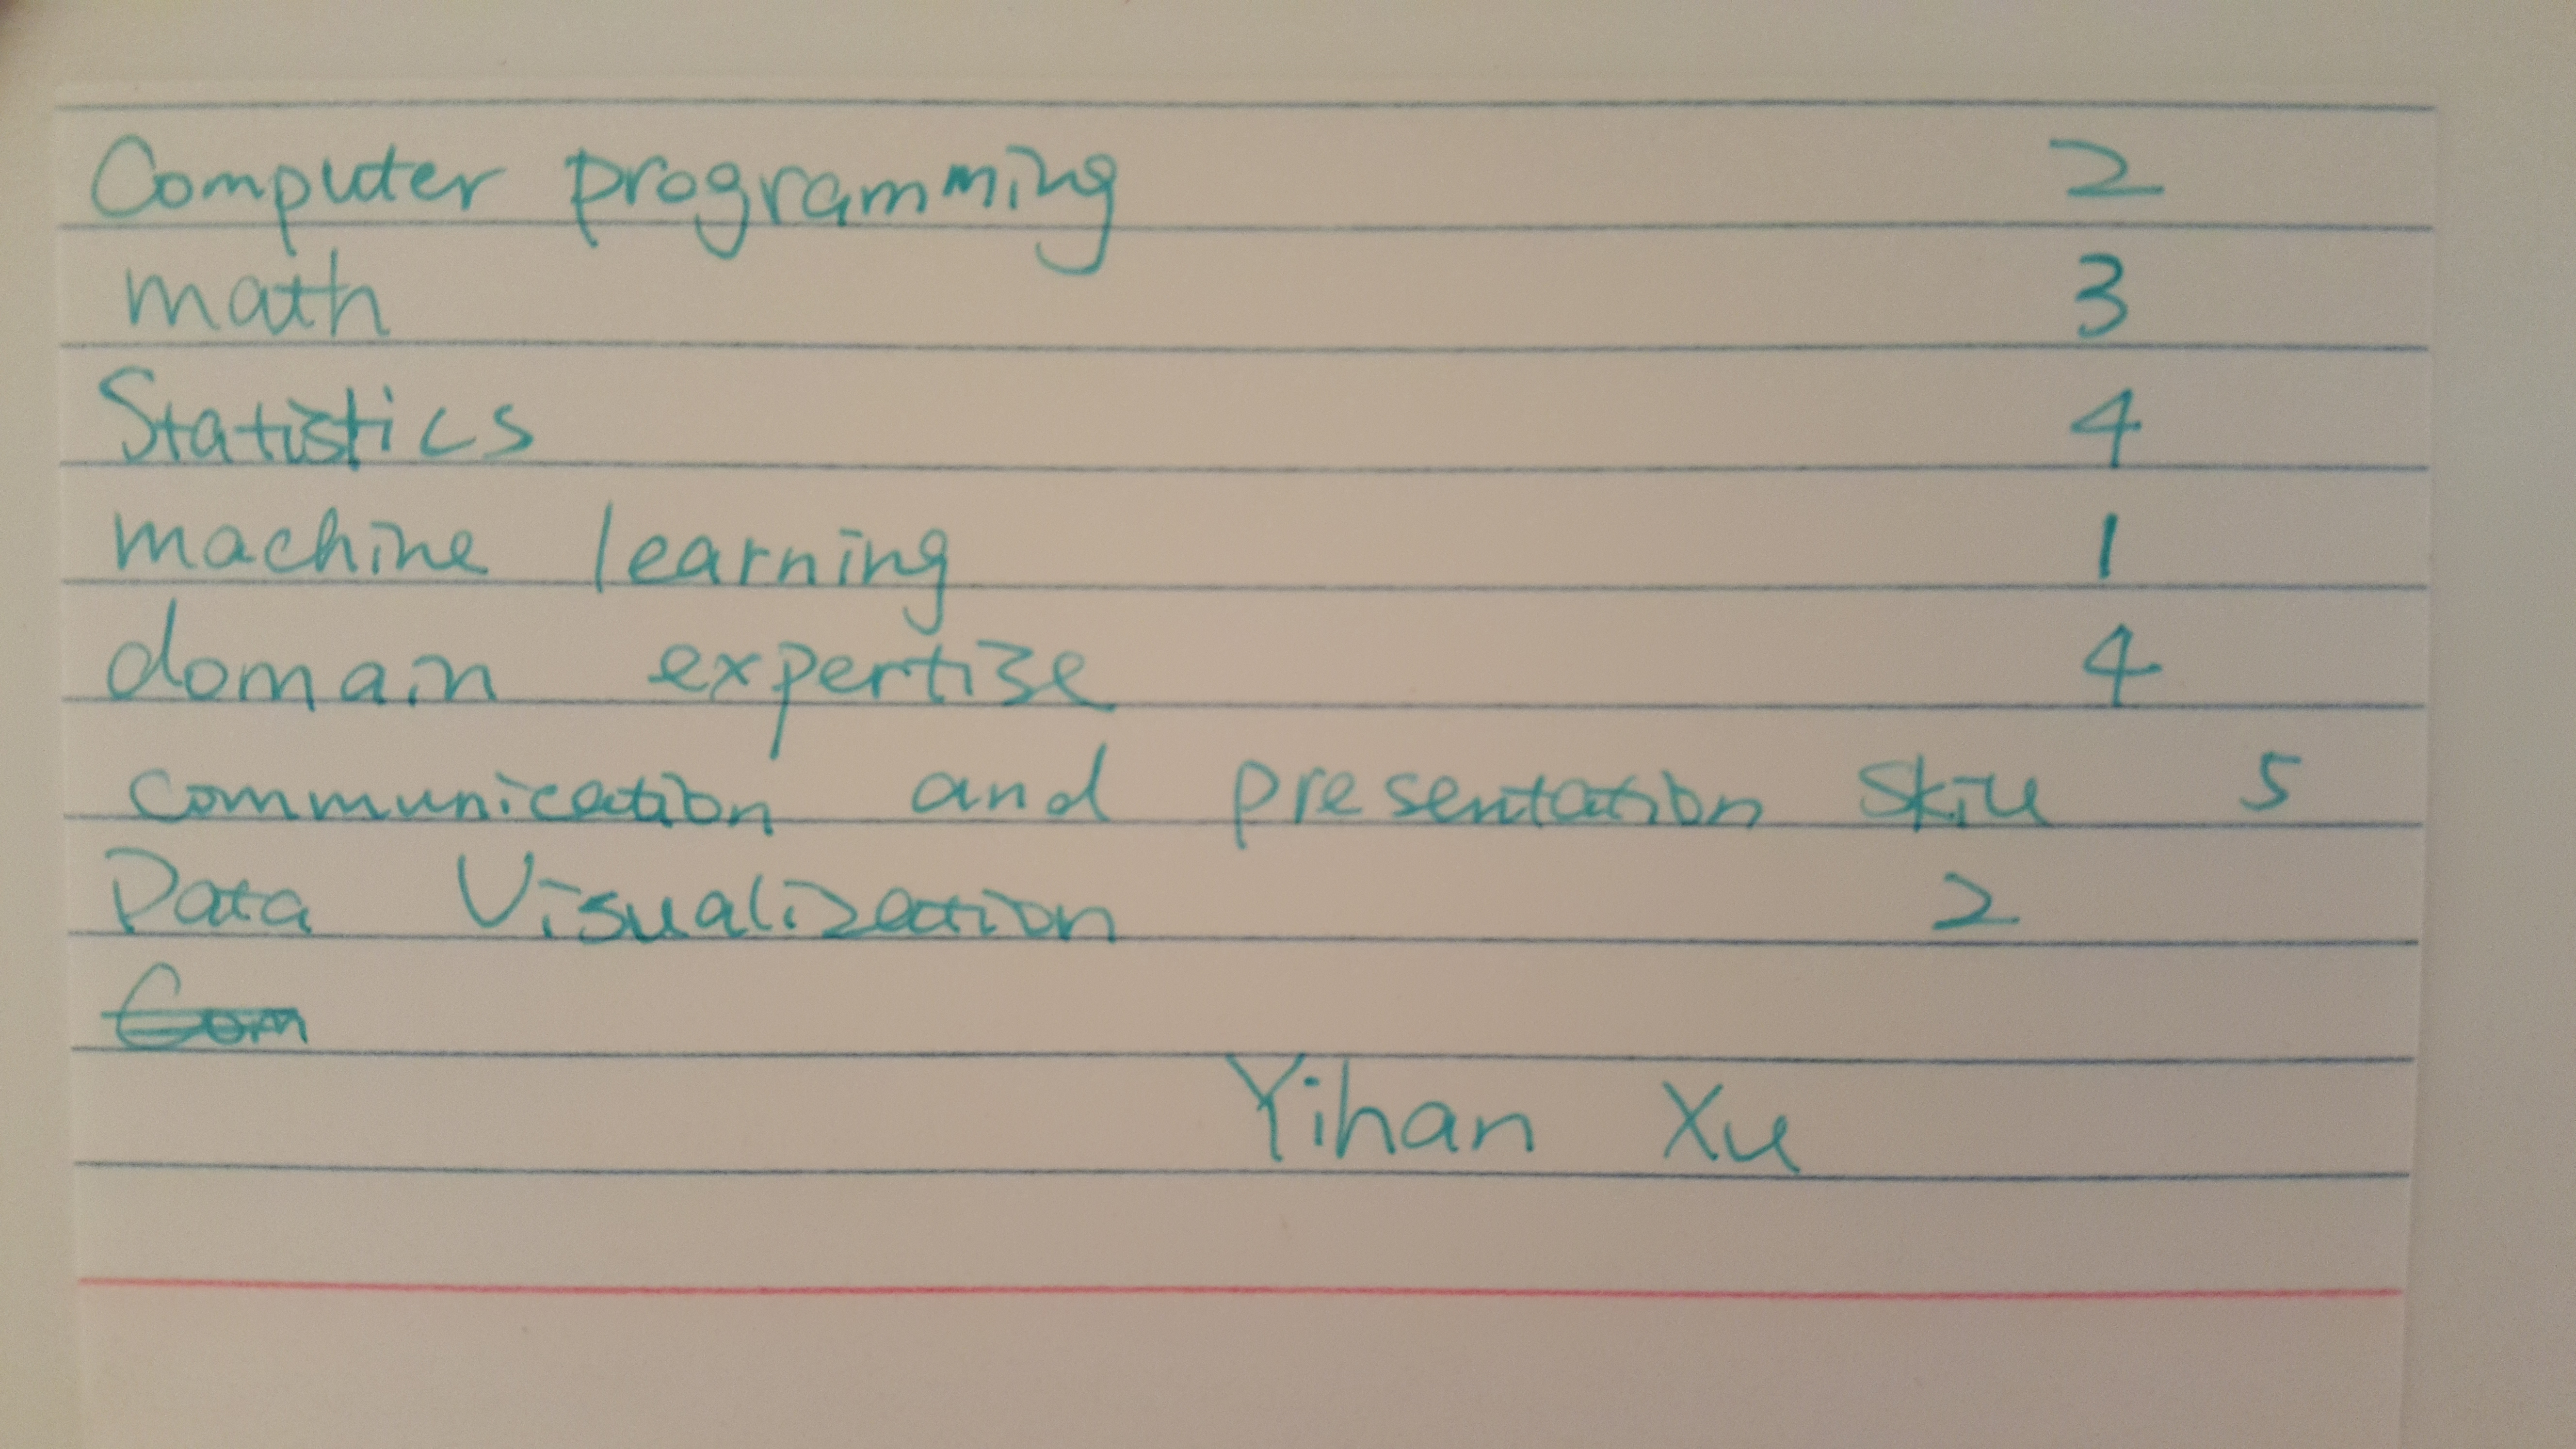 Computer programming 2
math 3
Statistics 4
machine learning 1
domain expertise 4
communication and presentation skill 5
Data Visualization 2
Com
Yihan Xu